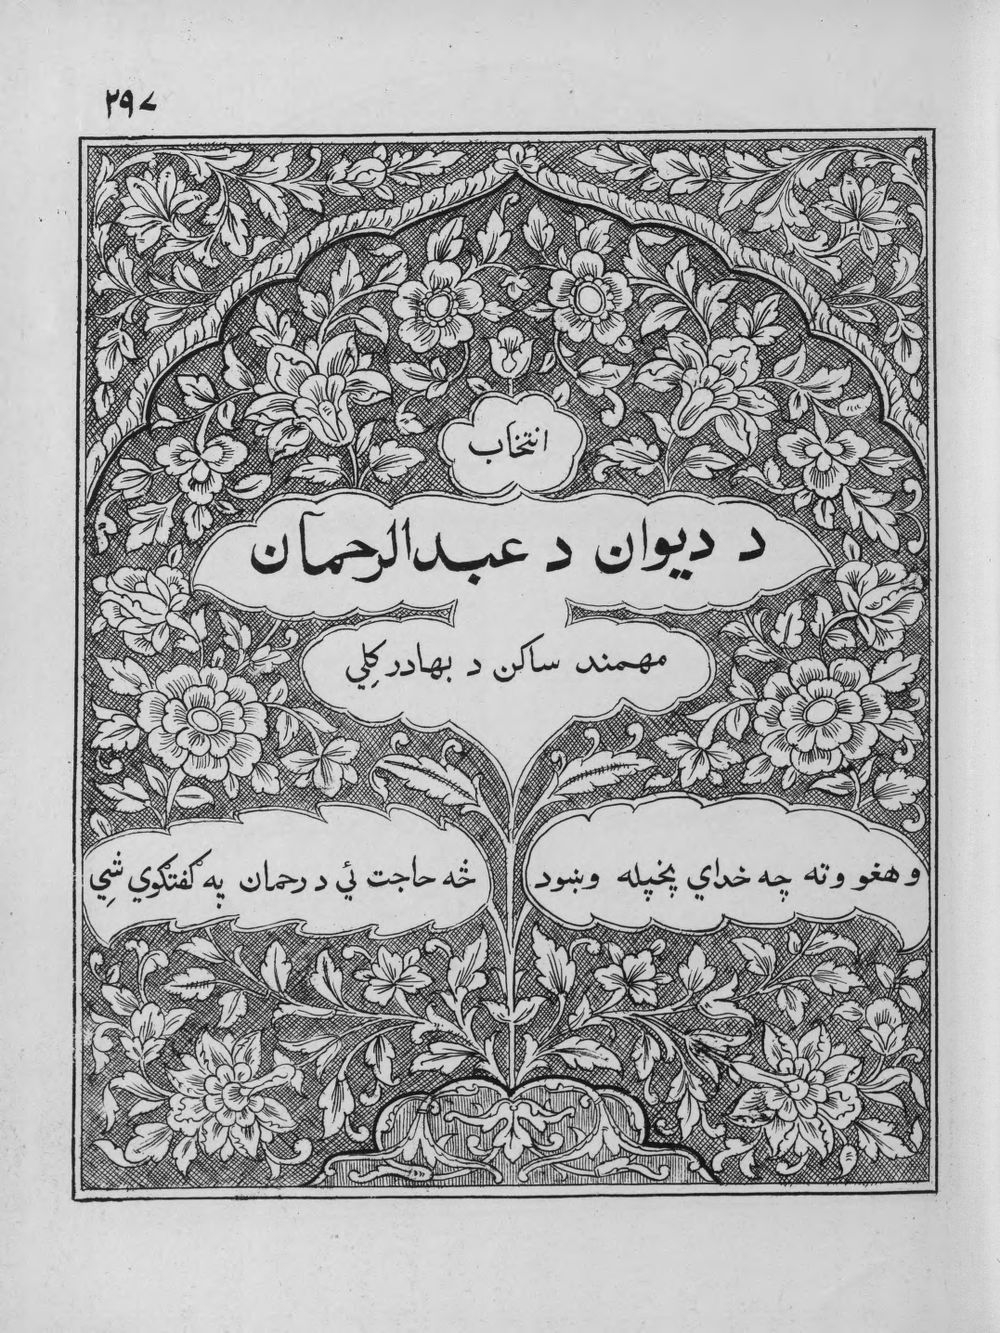 ۲۹۷
انتخاب
د ديوان د عبدالرحمان
مهمند ساکن د بهادر کلِي
و هغو وته چه خداي پخپله وښود
څه حاجت ئي د رحمان په ګفتګوي شِي